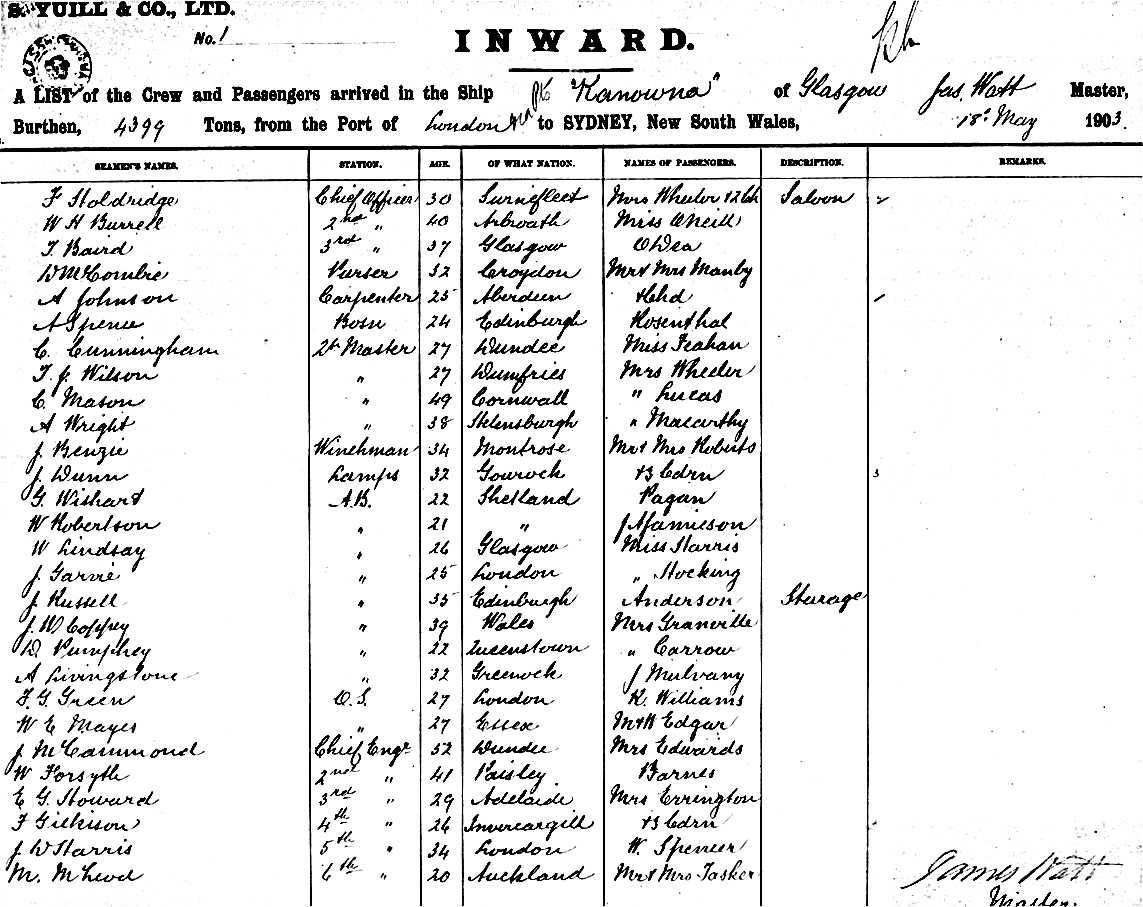 S. YUILL & CO., LTD.
No. 1
INWARD.
A LIST of the Crew and Passengers arrived in the Ship "Kanowna" of Glasgow Jas. Watt Master,
Burthen, 4399 Tons, from the Port of London to SYDNEY, New South Wales, 18 May 1903.
SEAMEN'S NAMES. STATION. AGE. OF WHAT NATION. NAMES OF PASSENGERS. DESCRIPTION. REMARKS.
F Holdridge Chief Officer 30 Surnefleet Mrs Wheeler & 2 Ch Saloon
W H Burrell 2nd " 40 Arbroath Miss ONeill
T. Baird 3rd " 37 Glasgow ODea
D McCombie Purser 32 Croydon Mr & Mrs Manby
A Johnson Carpenter 25 Aberdeen & Chd
A Spence Bosn 24 Edinburgh Rosenthal
C. Cunningham Qr Master 27 Dundee Miss Feahan
T. J. Wilson " 27 Dumfries Mrs Wheeler
C. Mason " 49 Cornwall " Lucas
A Wright " 38 Helensburgh " Macarthy
J. Benzie Winchman 34 Montrose Mr & Mrs Roberts
J. Dunn Lamps 32 Gourock & 3 Cdrn 3
G. Wishart A.B. 22 Shetland Pagan
W Robertson " 21 " J A Jamieson
W Lindsay " 26 Glasgow Miss Harris
J. Garvie " 25 London " Hocking
J. Russell " 35 Edinburgh Anderson Sturage
J. W Coffey " 39 Wales Mrs Granville
D. Pumphey " 22 Queenstown " Carrow
A Livingstone " 32 Greenock J Mulvany
F. G. Green O.S. 27 London K. Williams
W E Mayes " 27 Essex M & W Edgar
J McCammond Chief Engr 52 Dundee Mrs Edwards
W Forsyth 2nd " 41 Paisley Barnes
E G. Howard 3rd " 29 Adelaide Mrs Errington
F Gilkison 4th " 26 Invercargill & 3 Cdrn
J. W Harris 5th " 34 London W. Spencer
M. McLeod 6th " 20 Auckland Mr & Mrs Tasker
James Watt
Master.